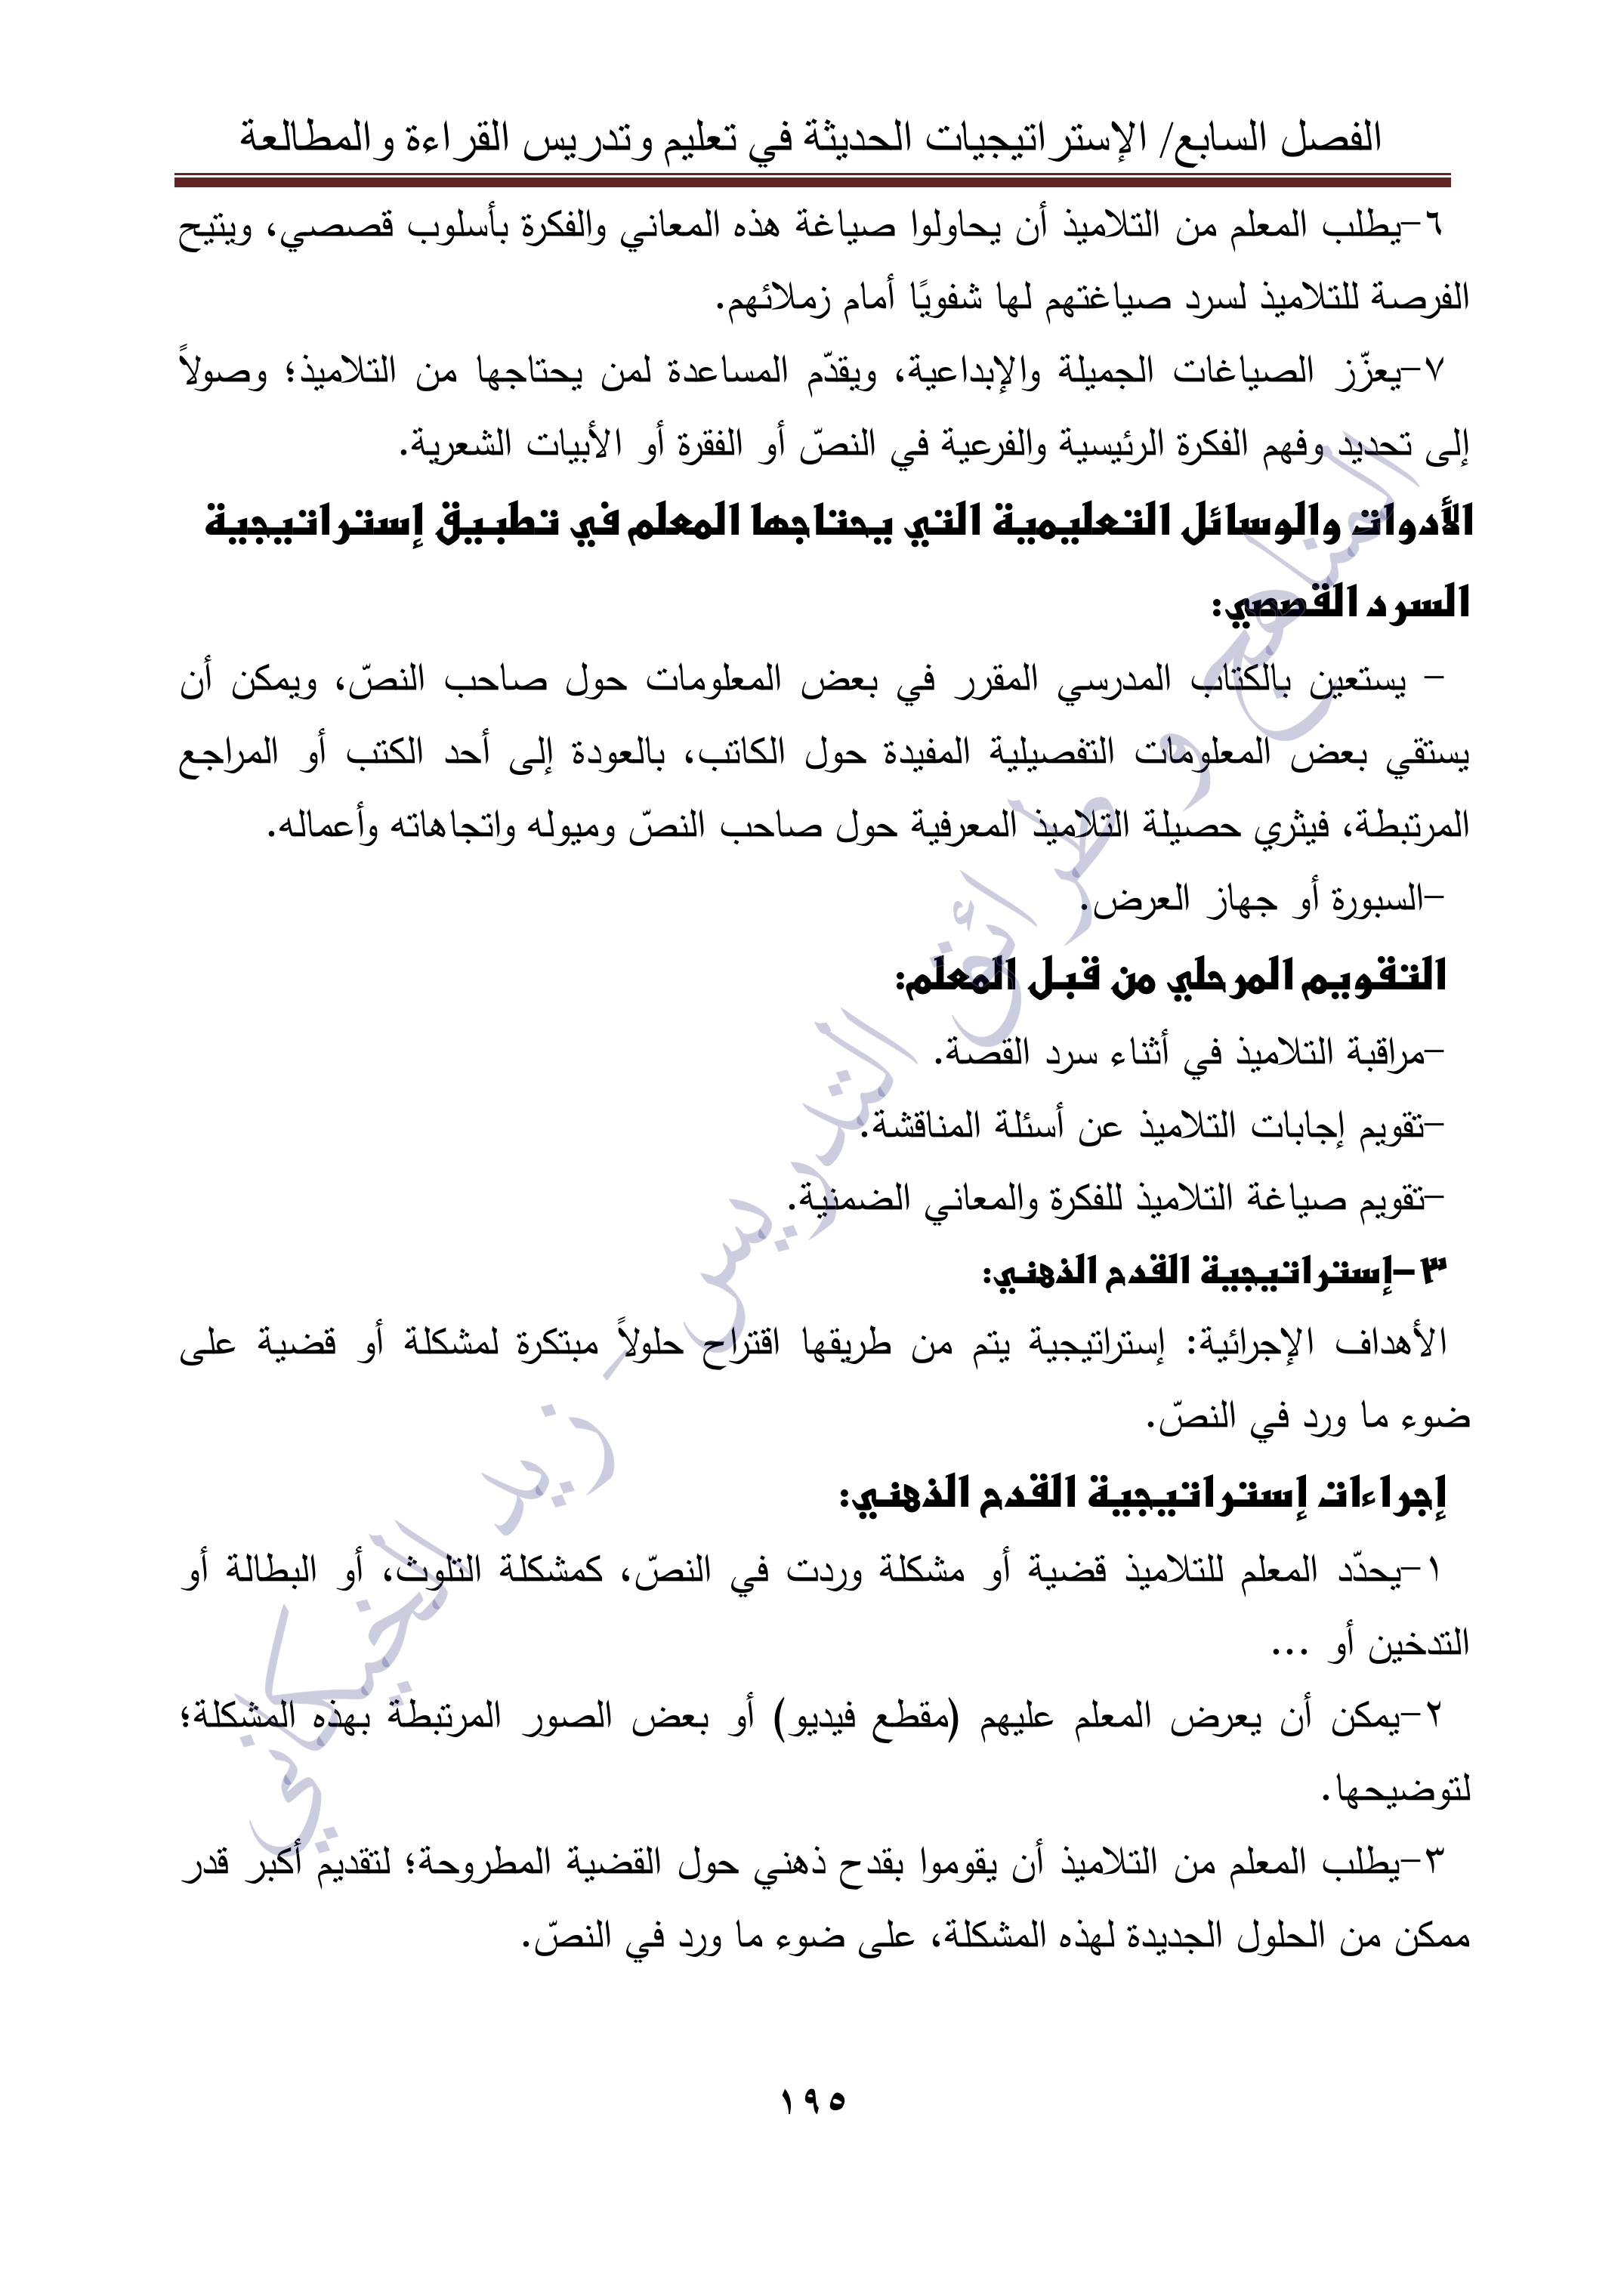 الفصل السابع/ الإستراتيجيات الحديثة في تعليم وتدريس القراءة والمطالعة
٦-يطلب المعلم من التلاميذ أن يحاولوا صياغة هذه المعاني والفكرة بأسلوب قصصي، ويتيح
الفرصة للتلاميذ لسرد صياغتهم لها شفويًا أمام زملائهم.
٧-يعزّز الصياغات الجميلة والإبداعية، ويقدّم المساعدة لمن يحتاجها من التلاميذ؛ وصولاً
إلى تحديد وفهم الفكرة الرئيسية والفرعية في النصّ أو الفقرة أو الأبيات الشعرية.
الأدوات والوسائل التعليمية التي يحتاجها المعلم في تطبيق إستراتيجية
السرد القصصي:
- يستعين بالكتاب المدرسي المقرر في بعض المعلومات حول صاحب النصّ، ويمكن أن
يستقي بعض المعلومات التفصيلية المفيدة حول الكاتب، بالعودة إلى أحد الكتب أو المراجع
المرتبطة، فيثري حصيلة التلاميذ المعرفية حول صاحب النصّ وميوله واتجاهاته وأعماله.
-السبورة أو جهاز العرض.
التقويم المرحلي من قبل المعلم:
-مراقبة التلاميذ في أثناء سرد القصة.
-تقويم إجابات التلاميذ عن أسئلة المناقشة.
-تقويم صياغة التلاميذ للفكرة والمعاني الضمنية.
٣-إستراتيجية القدح الذهني:
الأهداف الإجرائية: إستراتيجية يتم من طريقها اقتراح حلولاً مبتكرة لمشكلة أو قضية على
ضوء ما ورد في النصّ.
إجراءات إستراتيجية القدح الذهني:
١-يحدّد المعلم للتلاميذ قضية أو مشكلة وردت في النصّ، كمشكلة التلوث، أو البطالة أو
التدخين أو ...
٢-يمكن أن يعرض المعلم عليهم (مقطع فيديو) أو بعض الصور المرتبطة بهذه المشكلة؛
لتوضيحها.
٣-يطلب المعلم من التلاميذ أن يقوموا بقدح ذهني حول القضية المطروحة؛ لتقديم أكبر قدر
ممكن من الحلول الجديدة لهذه المشكلة، على ضوء ما ورد في النصّ.
المناهج و طرائق التدريس - زيد الخيكاني
١٩٥